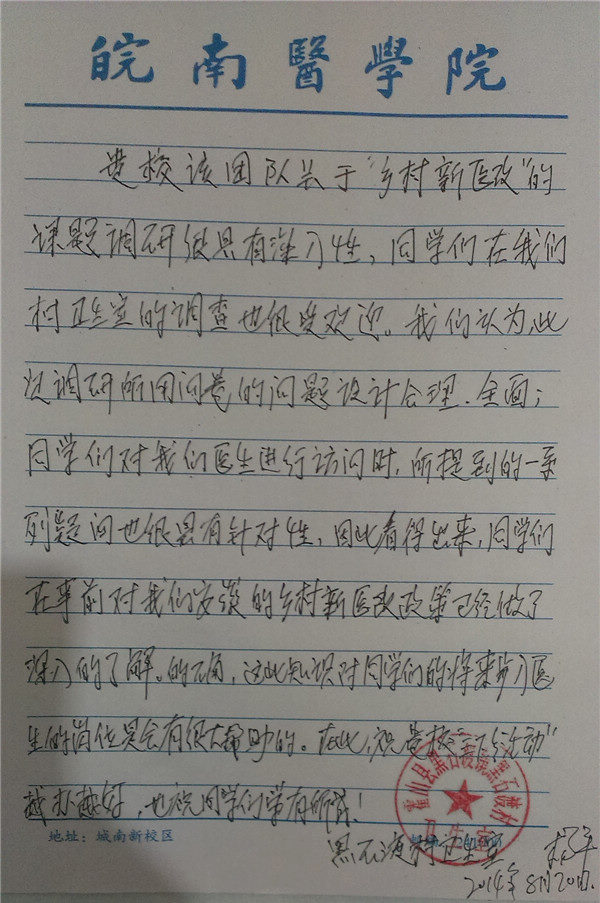 皖南醫學院
贵校该团队关于“乡村新医改”的
课题调研很具有深入性，同学们在我们
村卫生室的调查也很受欢迎。我们认为，此
次调研所用问卷的问题设计合理、全面；
同学们对我们医生进行访问时，所提到的一系
列疑问也很具有针对性，因此看得出来，同学们
在事前对我们安徽的乡村新医改政策已经做了
深入的了解。的确，这些知识对同学们的将来步入医
生的岗位是会有很大帮助的。在此，祝贵校“三下乡活动”
越办越好，也祝同学们学有所成！
地址：城南新校区
黑石渡村卫生室
2014年8月20日.